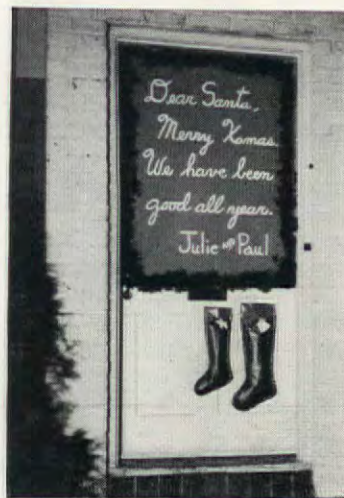 Dear Santa,
Merry Xmas.
We have been
good all year.
Julie AND Paul